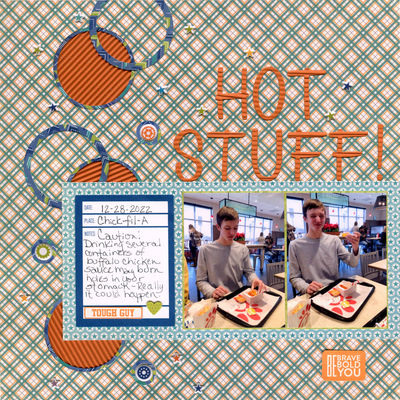 HOT
STUFF!
DATE 12-28-2022
PLACE Chick-fil-A
NOTES Caution:
Drinking several
containers of
buffalo chicken
sauce may burn
holes in your
stomach - Really
it could happen.
TOUGH GUY
BE BRAVE
BE BOLD
BE YOU